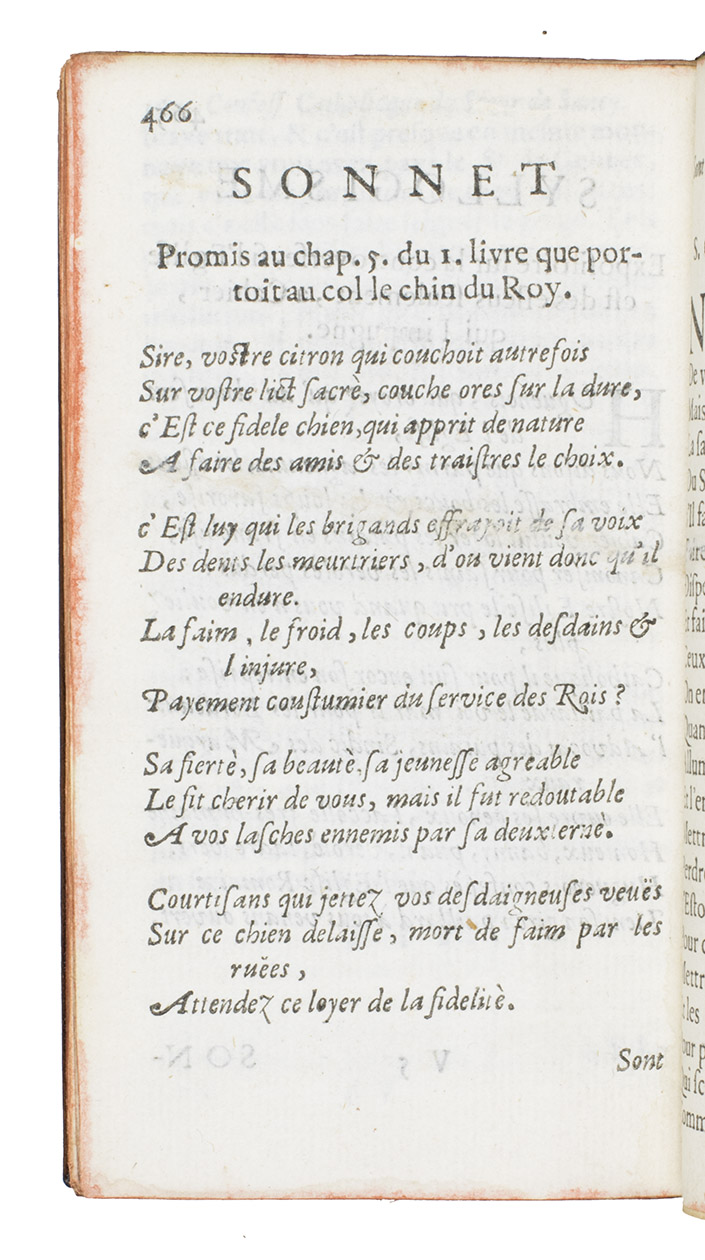 466
SONNET
Promis au chap. 5. du 1. livre que por-
toit au col le chin du Roy.
Sire, voſtre citron qui couchoit autrefois
Sur voſtre lict ſacrè, couche ores ſur la dure,
c'Eſt ce fidele chien, qui apprit de nature
A faire des amis & des traiſtres le choix.
c'Eſt luy qui les brigands effrayoit de ſa voix
Des dents les meurtriers, d'ou vient donc qu'il
endure.
La faim, le froid, les coups, les deſdains &
l injure,
Payement couſtumier du ſervice des Rois?
Sa fiertè, ſa beautè, ſa jeuneſſe agreable
Le fit cherir de vous, mais il fut redoutable
A vos laſches ennemis par ſa
Courtiſans qui jettez vos deſdaigneuſes veuës
Sur ce chien delaiſſe, mort de faim par les
ruëes,
Attendez ce loyer de la fidelitè.
Sont